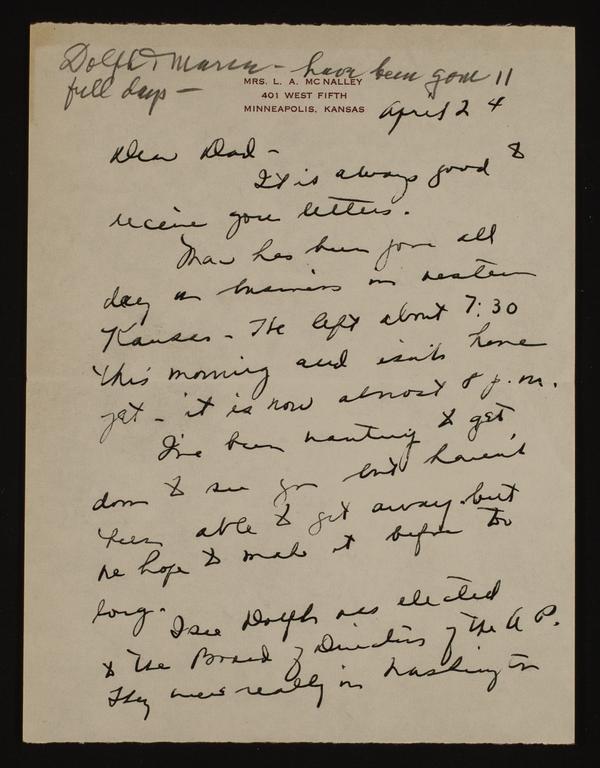 Dolph & Marcia - have been gone 11
full days -
MRS. L. A. MC NALLEY
401 WEST FIFTH
MINNEAPOLIS, KANSAS
April 24
Dear Dad -
It is always good to
receive your letters.
Mac has been gone all
day on business in western
Kansas - He left about 7:30
this morning and isn't home
yet - it is now almost 8 p.m.
I've been wanting to get
down to see you but haven't
been able to get away but
we hope to make it before too
long.
I see Dolph was elected
to the Board of Directors of the A P.
They were really in Washington